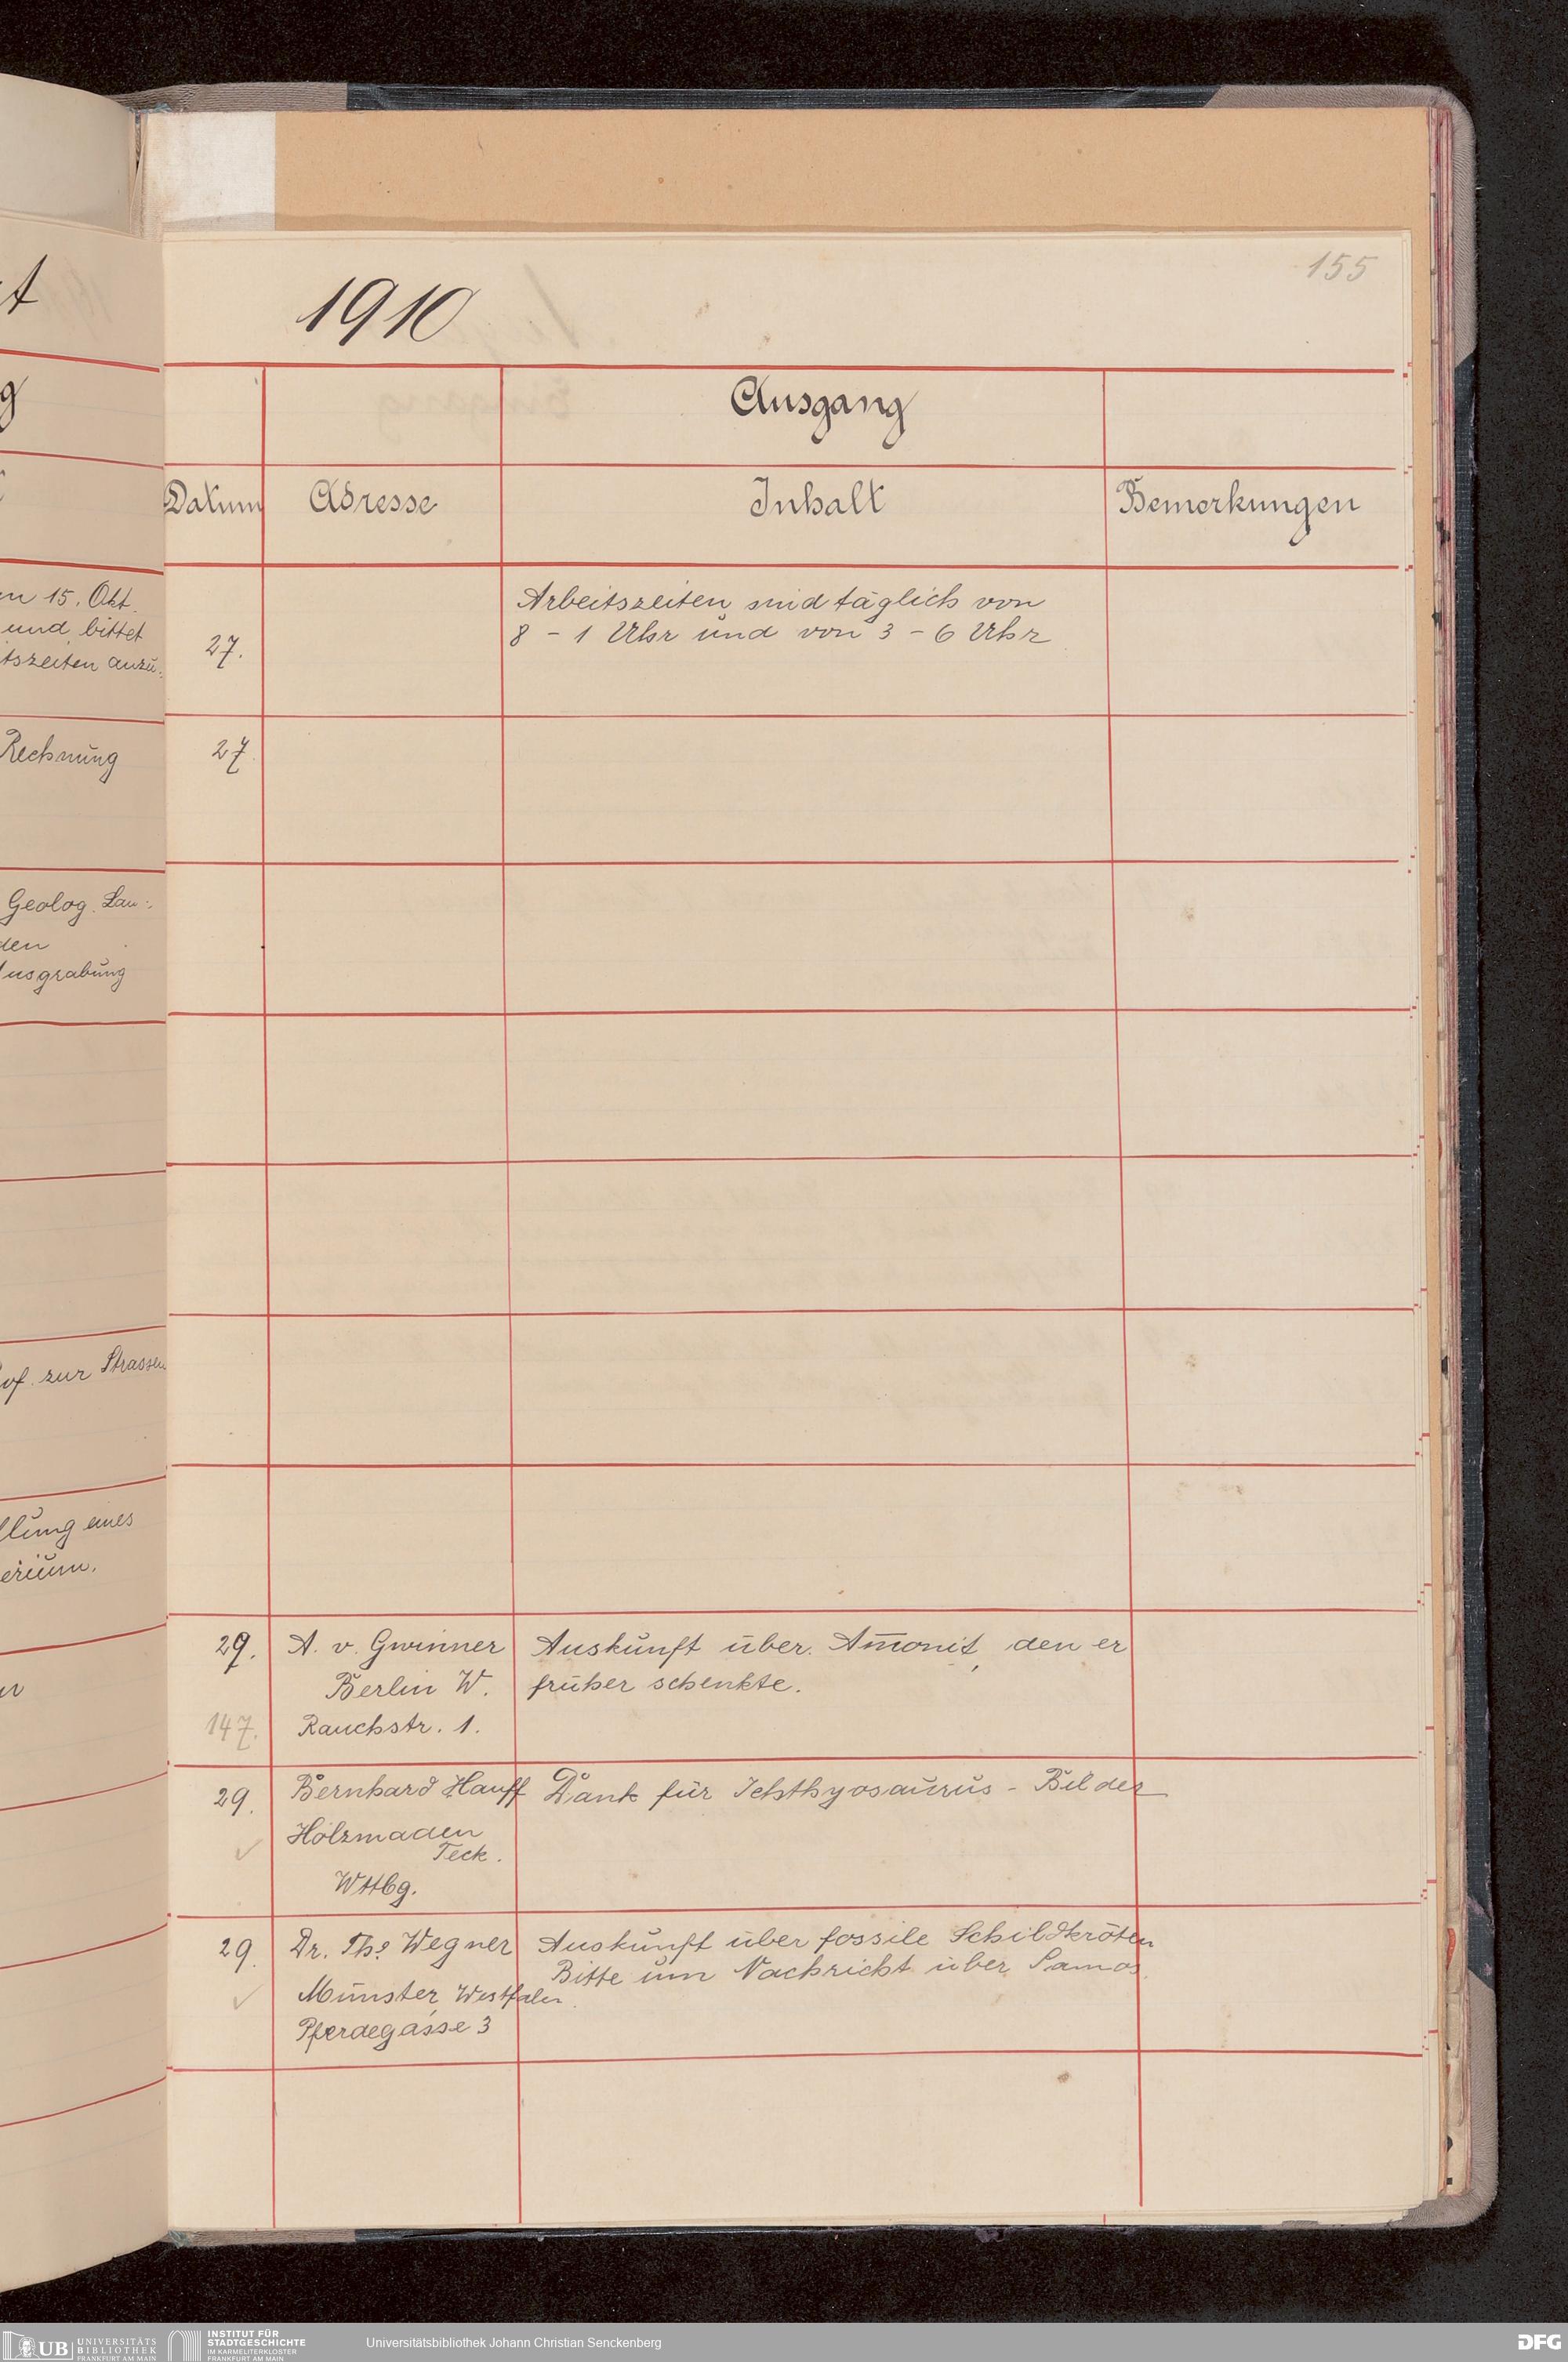 155
1910
Ausgang
Datum Adresse Inhalt Bemerkungen
en 15. Okt.
und bittet
tszeiten anzu:
27.
Arbeitszeiten sind täglich von
8 - 1 Uhr und von 3 - 6 Uhr
Rechnung
27.
Geolog. Lan:
den
Ausgrabung
Prof. zur Strassen
llung eines
erium.
29. A. v. Gwinner Auskunft über Am̄onit, den er
Berlin W. früher schenkte.
147. Rauchstr. 1.
29. Bernhard Hauff Dank für Ichthyosaurus - Bilder
Holzmaden
Teck.
Wttbg.
29. Dr. Th. Wegner Auskunft über fossile Schildkröten
Bitte um Nachricht über Samos
Münster, Westfalen.
Pferdegasse 3
UB UNIVERSITÄTS
BIBLIOTHEK
FRANKFURT AM MAIN
INSTITUT FÜR
STADTGESCHICHTE
IM KARMELITERKLOSTER
FRANKFURT AM MAIN
Universitätsbibliothek Johann Christian Senckenberg
DFG